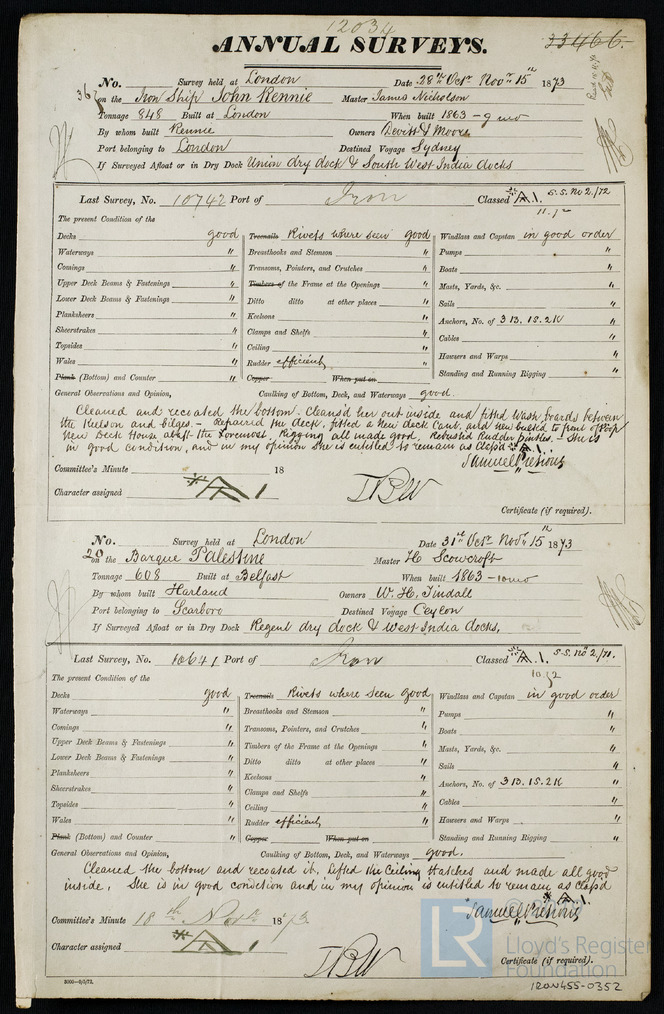 12034
ANNUAL SURVEYS.
33466.
No. Survey held at London Date 28th Octr Novr 15th 1873
on the Iron Ship John Rennie Master James Nicholson
Tonnage 848 Built at London When built 1863 - 9 mo
By whom built Rennie Owners Devitt & Moore
Port belonging to London Destined Voyage Sydney
If Surveyed Afloat or in Dry Dock Union dry dock & South West India docks
Last Survey, No. 10742 Port of Iron Classed A.1. S.S. No 2/72
11.72
The present Condition of the
Decks good Treenails Rivets where seen good Windlass and Capstan in good order
Waterways " Breasthooks and Stemson " Pumps "
Comings " Transoms, Pointers, and Crutches " Boats "
Upper Deck Beams & Fastenings " Timbers of the Frame at the Openings " Masts, Yards, &c. "
Lower Deck Beams & Fastenings " Ditto ditto at other places " Sails "
Planksheers " Keelsons " Anchors, No. of 3 B. 1S. 2K "
Sheerstrakes " Clamps and Shelfs " Cables "
Topsides " Ceiling " Hawsers and Warps "
Wales " Rudder efficient Standing and Running Rigging "
Plank (Bottom) and Counter " Copper When put on
General Observations and Opinion, Caulking of Bottom, Deck, and Waterways good.
Cleaned and recoated the bottom. Cleans'd her out inside and fitted wash boards between
the Kelson and Bilges. - Repaired the deck, fitted a new deck and new to front of Poop
New Deck House abaft the Foremast. Rigging all made good. Rebushed Rudder pintles. - She is
in good condition, and in my opinion she is entitled to remain as class'd
Samuel Pretious
Committee's Minute 18
Character assigned A 1
Certificate (if required).
No. Survey held at London Date 31st Octr Novr 15th 1873
20 on the Barque Palestine Master H. Scowcroft
Tonnage 608 Built at Belfast When built 1863 - 10 mo
By whom built Harland Owners W. H. Tindall
Port belonging to Scarboro Destined Voyage Ceylon
If Surveyed Afloat or in Dry Dock Regent dry dock & West India docks.
Last Survey, No. 10641 Port of Iron Classed A.1. S.S. No 2/71.
10.72
The present Condition of the
Decks good Treenails Rivets where seen good Windlass and Capstan in good order
Waterways " Breasthooks and Stemson " Pumps "
Comings " Transoms, Pointers, and Crutches " Boats "
Upper Deck Beams & Fastenings " Timbers of the Frame at the Openings " Masts, Yards, &c. "
Lower Deck Beams & Fastenings " Ditto ditto at other places " Sails "
Planksheers " Keelsons " Anchors, No. of 3 B. 1S. 2K "
Sheerstrakes " Clamps and Shelfs " Cables "
Topsides " Ceiling " Hawsers and Warps "
Wales " Rudder efficient Standing and Running Rigging "
Plank (Bottom) and Counter " Copper When put on
General Observations and Opinion, Caulking of Bottom, Deck, and Waterways good.
Cleaned the bottom and recoated it, lifted the Ceiling Hatches and made all good
inside. She is in good condition and in my opinion is entitled to remain as class'd
Samuel Pretious
Committee's Minute 18th Novr 1873
Character assigned A 1
Certificate (if required).
LR Lloyd's Register
Foundation
IRON455-0352